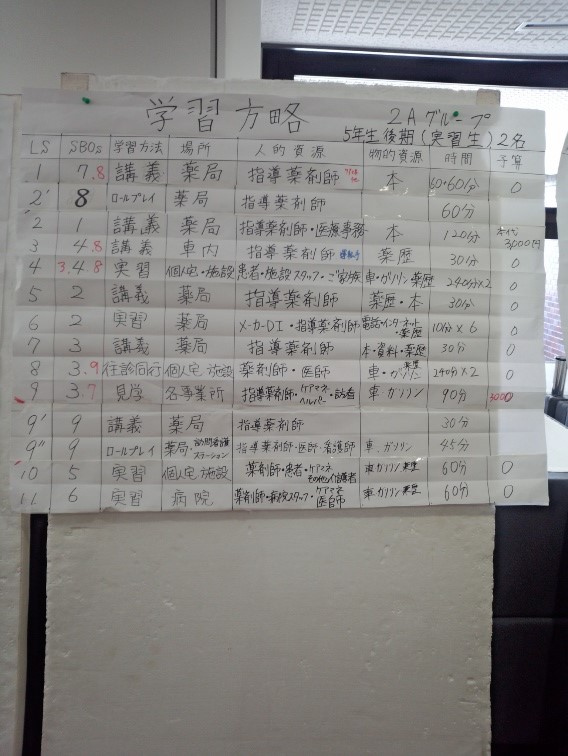 学習方略 2Aグループ
5年生後期(実習生)2名
LS SBOs 学習方法 場所 人的資源 物的資源 時間 予算
1 7.8 講義 薬局 指導薬剤師 本 60+60分 0
2' 8 ロールプレイ 薬局 指導薬剤師 60分
2 1 講義 薬局 指導薬剤師・医療事務 本 120分 本代 3,000円
3 4.8 講義 車内 指導薬剤師 薬歴 30分 0
4 3.4.8 実習 個人宅・施設 患者・施設スタッフ・ご家族 車・ガソリン 薬歴 240分×2 0
5 2 講義 薬局 指導薬剤師 薬歴・本 30分 0
6 2 実習 薬局 メーカーDI・指導薬剤師 電話・インターネット・薬歴 10分×6 0
7 3 講義 薬局 指導薬剤師 本・資料・薬歴 30分 0
8 3.9 往診同行 個人宅 施設 薬剤師・医師 車・ガソリン 薬歴 240分×2 0
9 3.7 見学 各事業所 指導薬剤師・ケアマネ・ヘルパー・訪看 車 ガソリン 90分 3000
9' 9 講義 薬局 指導薬剤師 30分
9" 9 ロールプレイ 薬局・訪問看護ステーション 指導薬剤師・医師・看護師 車、ガソリン 45分
10 5 実習 個人宅 施設 薬剤師・患者・ケアマネ その他の介護者 車 ガソリン 薬歴 60分 0
11 6 実習 病院 薬剤師・病院スタッフ・ケアマネ 医師 車 ガソリン 薬歴 60分 0